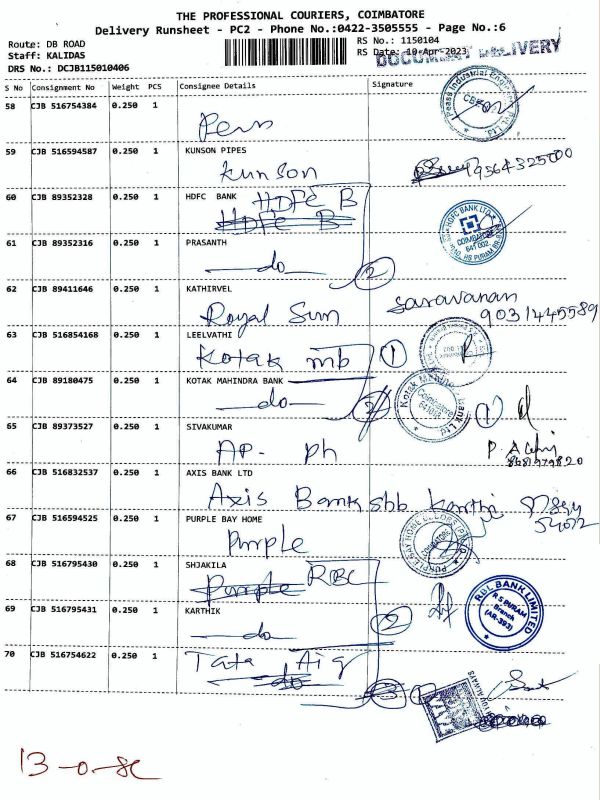 THE PROFESSIONAL COURIERS, COIMBATORE
Delivery Runsheet - PC2 - Phone No.:0422-3505555 - Page No.:6
Route: DB ROAD
Staff: KALIDAS
DRS No.: DCJB115010406
RS No.: 1150104
RS Date: 10-Apr-2023
DOCUMENT DELIVERY
S No Consignment No Weight PCS Consignee Details Signature
58 CJB 516754384 0.250 1
59 CJB 516594587 0.250 1 KUNSON PIPES
Kunson
60 CJB 89352328 0.250 1 HDFC BANK HDFC B
HDFC B
HDFC BANK LTD
COIMBATORE
641 002
61 CJB 89352316 0.250 1 PRASANTH
do 2
62 CJB 89411646 0.250 1 KATHIRVEL
Royal Sun Saravanan
9031445589
63 CJB 516854168 0.250 1 LEELVATHI
Kotak mb 1
64 CJB 89180475 0.250 1 KOTAK MAHINDRA BANK
do 2 1
65 CJB 89373527 1 0.250 1 SIVAKUMAR
AP- ph
66 CJB 516832537 0.250 1 AXIS BANK LTD
Axis Bank sbb Karthi
67 CJB 516594525 0.250 1 PURPLE BAY HOME
Purple
PURPLE BAY HOME DECORS
68 CJB 516795430 0.250 1 SHJAKILA
Purple RBL
RBL BANK LIMITED
R S PURAM
Branch
(AR-393)
69 CJB 516795431 0.250 1 KARTHIK
do 2
70 CJB 516754622 0.250 1
Tata Aig
do 3 1
13-0-SC